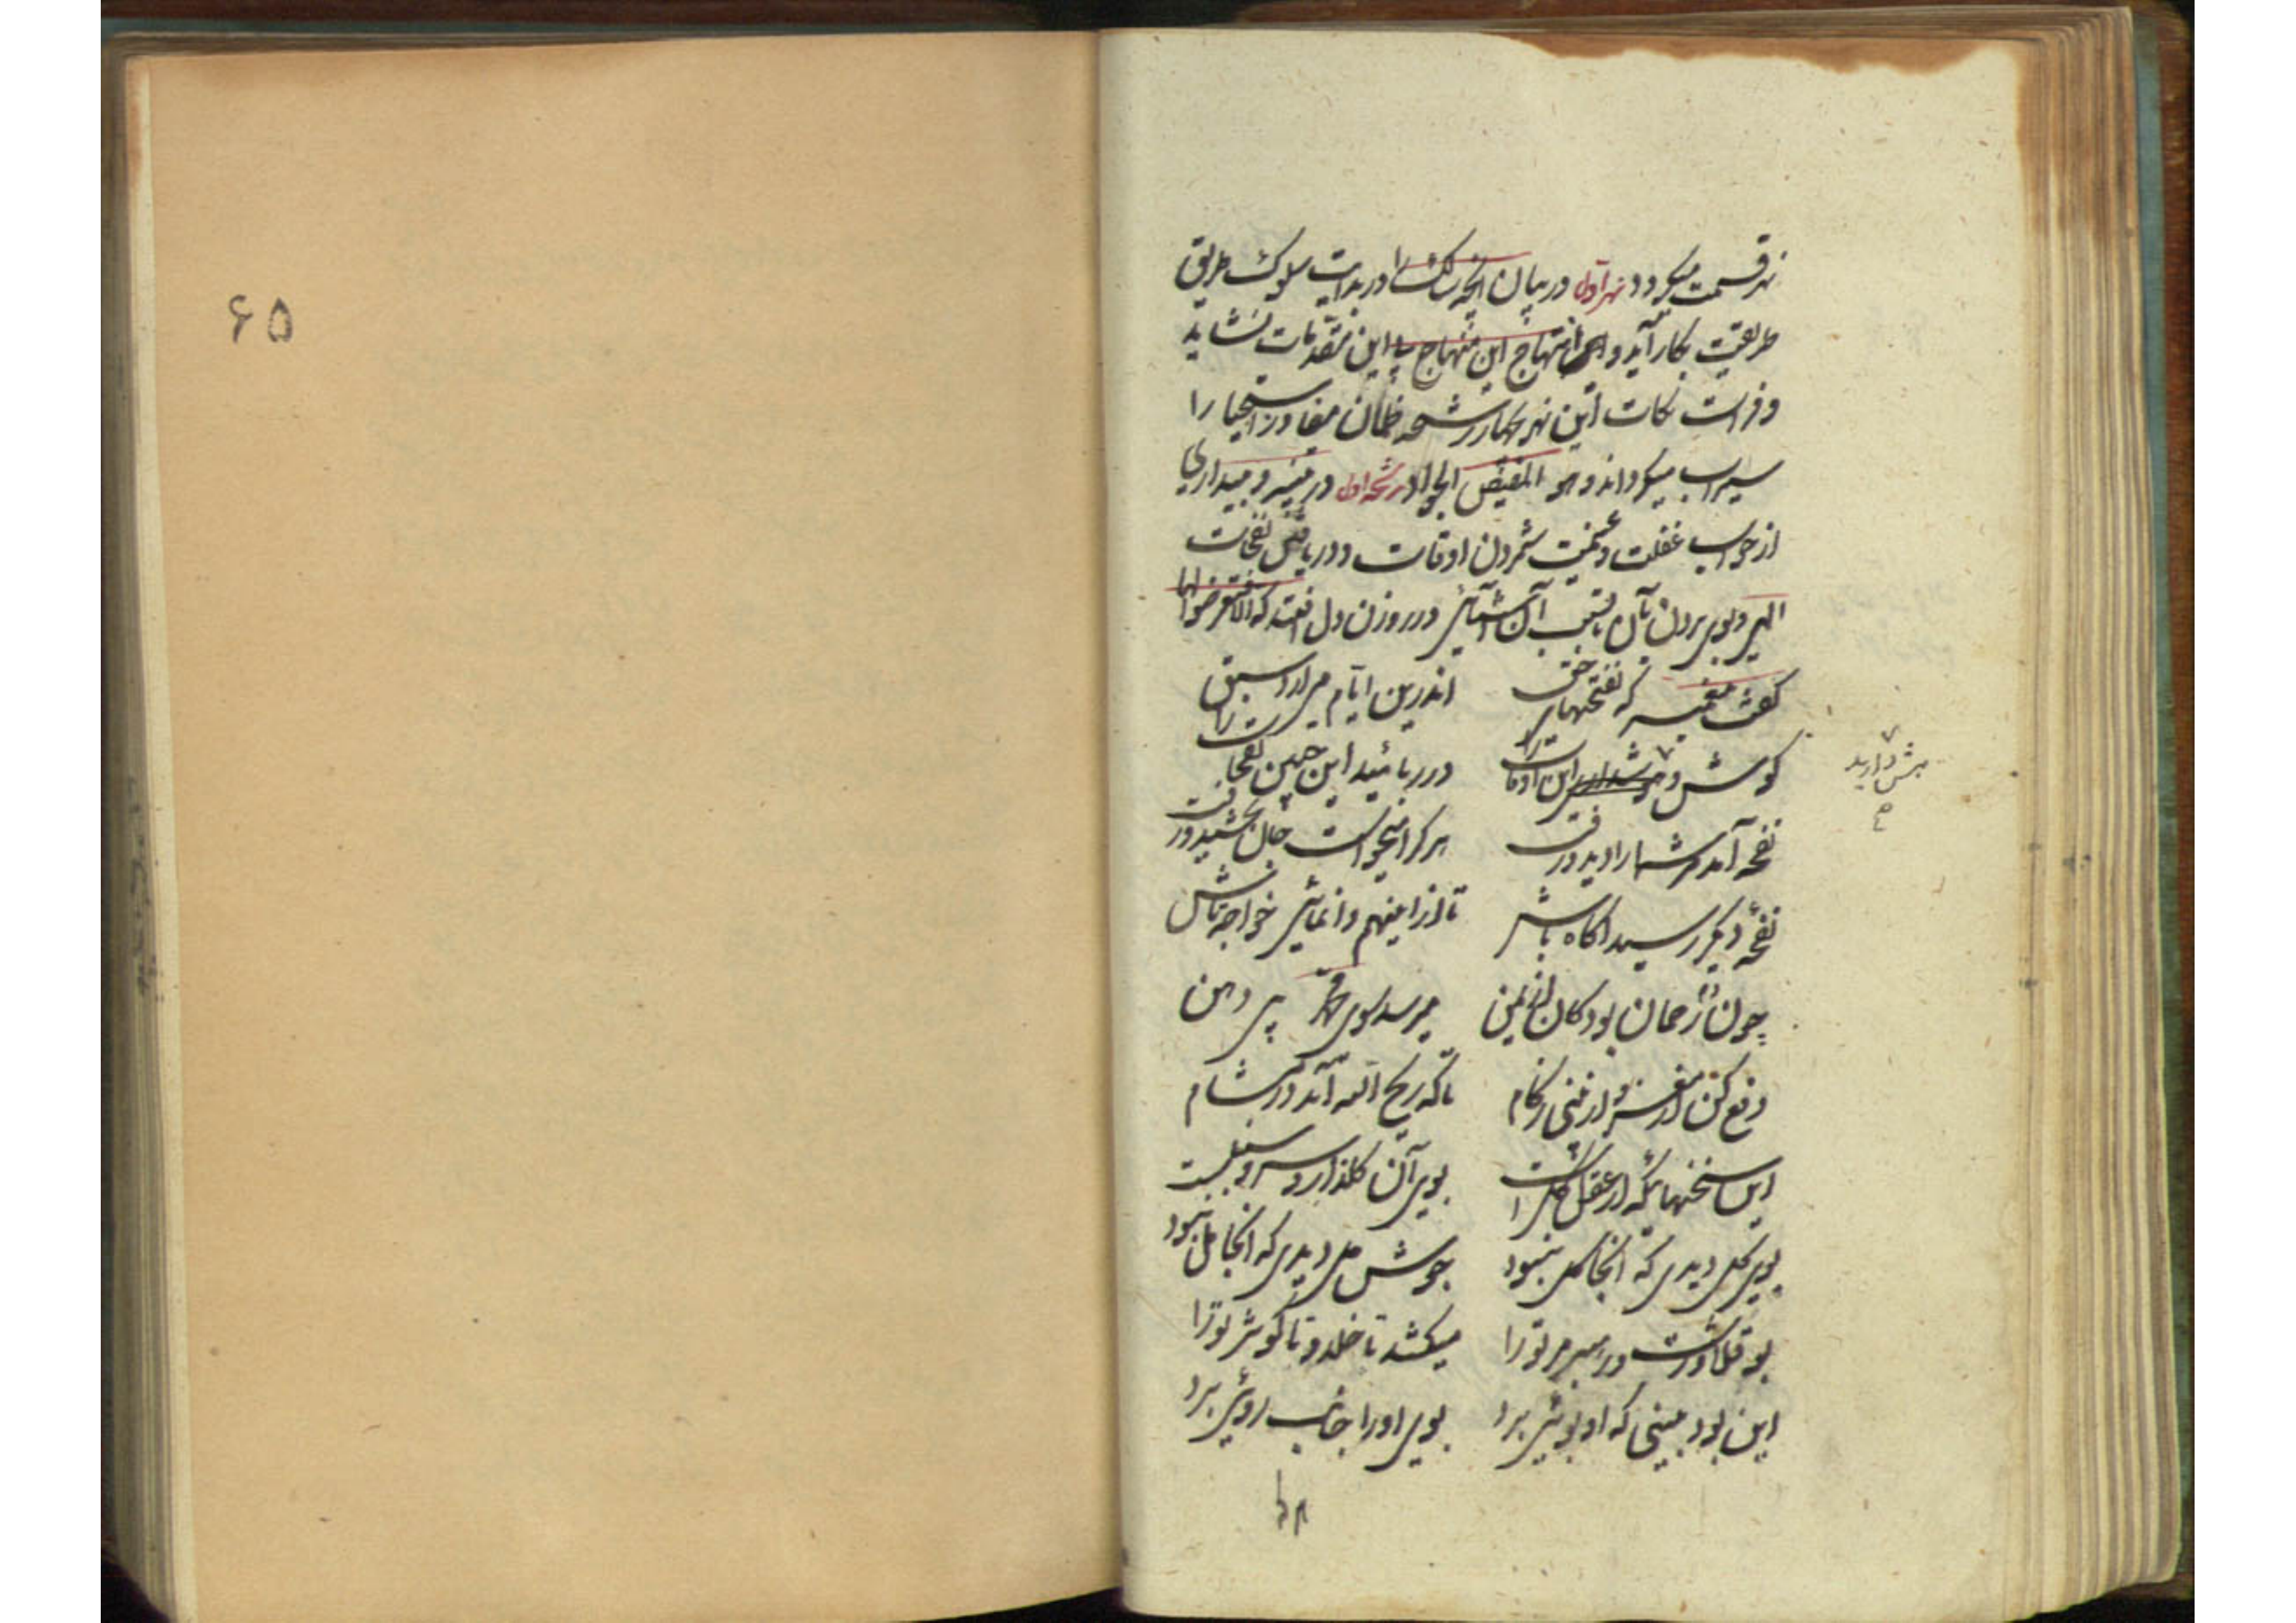 نهر قسمت میکردد نهر اول در بیان آنچه سالک را در بدایت سلوک طریق
طریقت بکار آید و انتهاج این منهاج بی این مقدمات نشاید
و فرات نکات این نهر بچهار رشحه ظمآن مفاوز را
سیراب میکرداند و هو المفیض الجواد رشحه اول در تنبیه و بیداری
از خواب غفلت و غنیمت شمردن اوقات و دریافتن نفحات
الهی و بوی بردن بآن در روزن دل افتد که الا فتعرضوا لها
گفت پیغمبر که نفحتهای حق اندرین ایام می آرد سبق
کوش و هشدارید این اوقات را در ربائید این چنین نفحات را
هش دارید
نفحه آمد مر شما را دید و رفت هر کرا میخواست جان بخشید و رفت
نفحهٔ دیگر رسید اکاه باش تا ازین هم وانمانی خواجه تاش
چون دم رحمان بود کان از یمن میرسد سوی محمد بی دهن
دفع کن از مغز و از بینی زکام تا که ریح الله آید در مشام
این سخنهائیکه از عقل کل است بوی آن کلزار و سرو و سنبلست
بوی کل دیدی که آنجا کل نبود جوش مل دیدی که آنجا مل نبود
بو قلاوزست و رهبر مر تو را میکشد تا خلد و کوثر تو را
این بود بینی که او بوئی برد بوی او را جانب روئی برد
۶۵